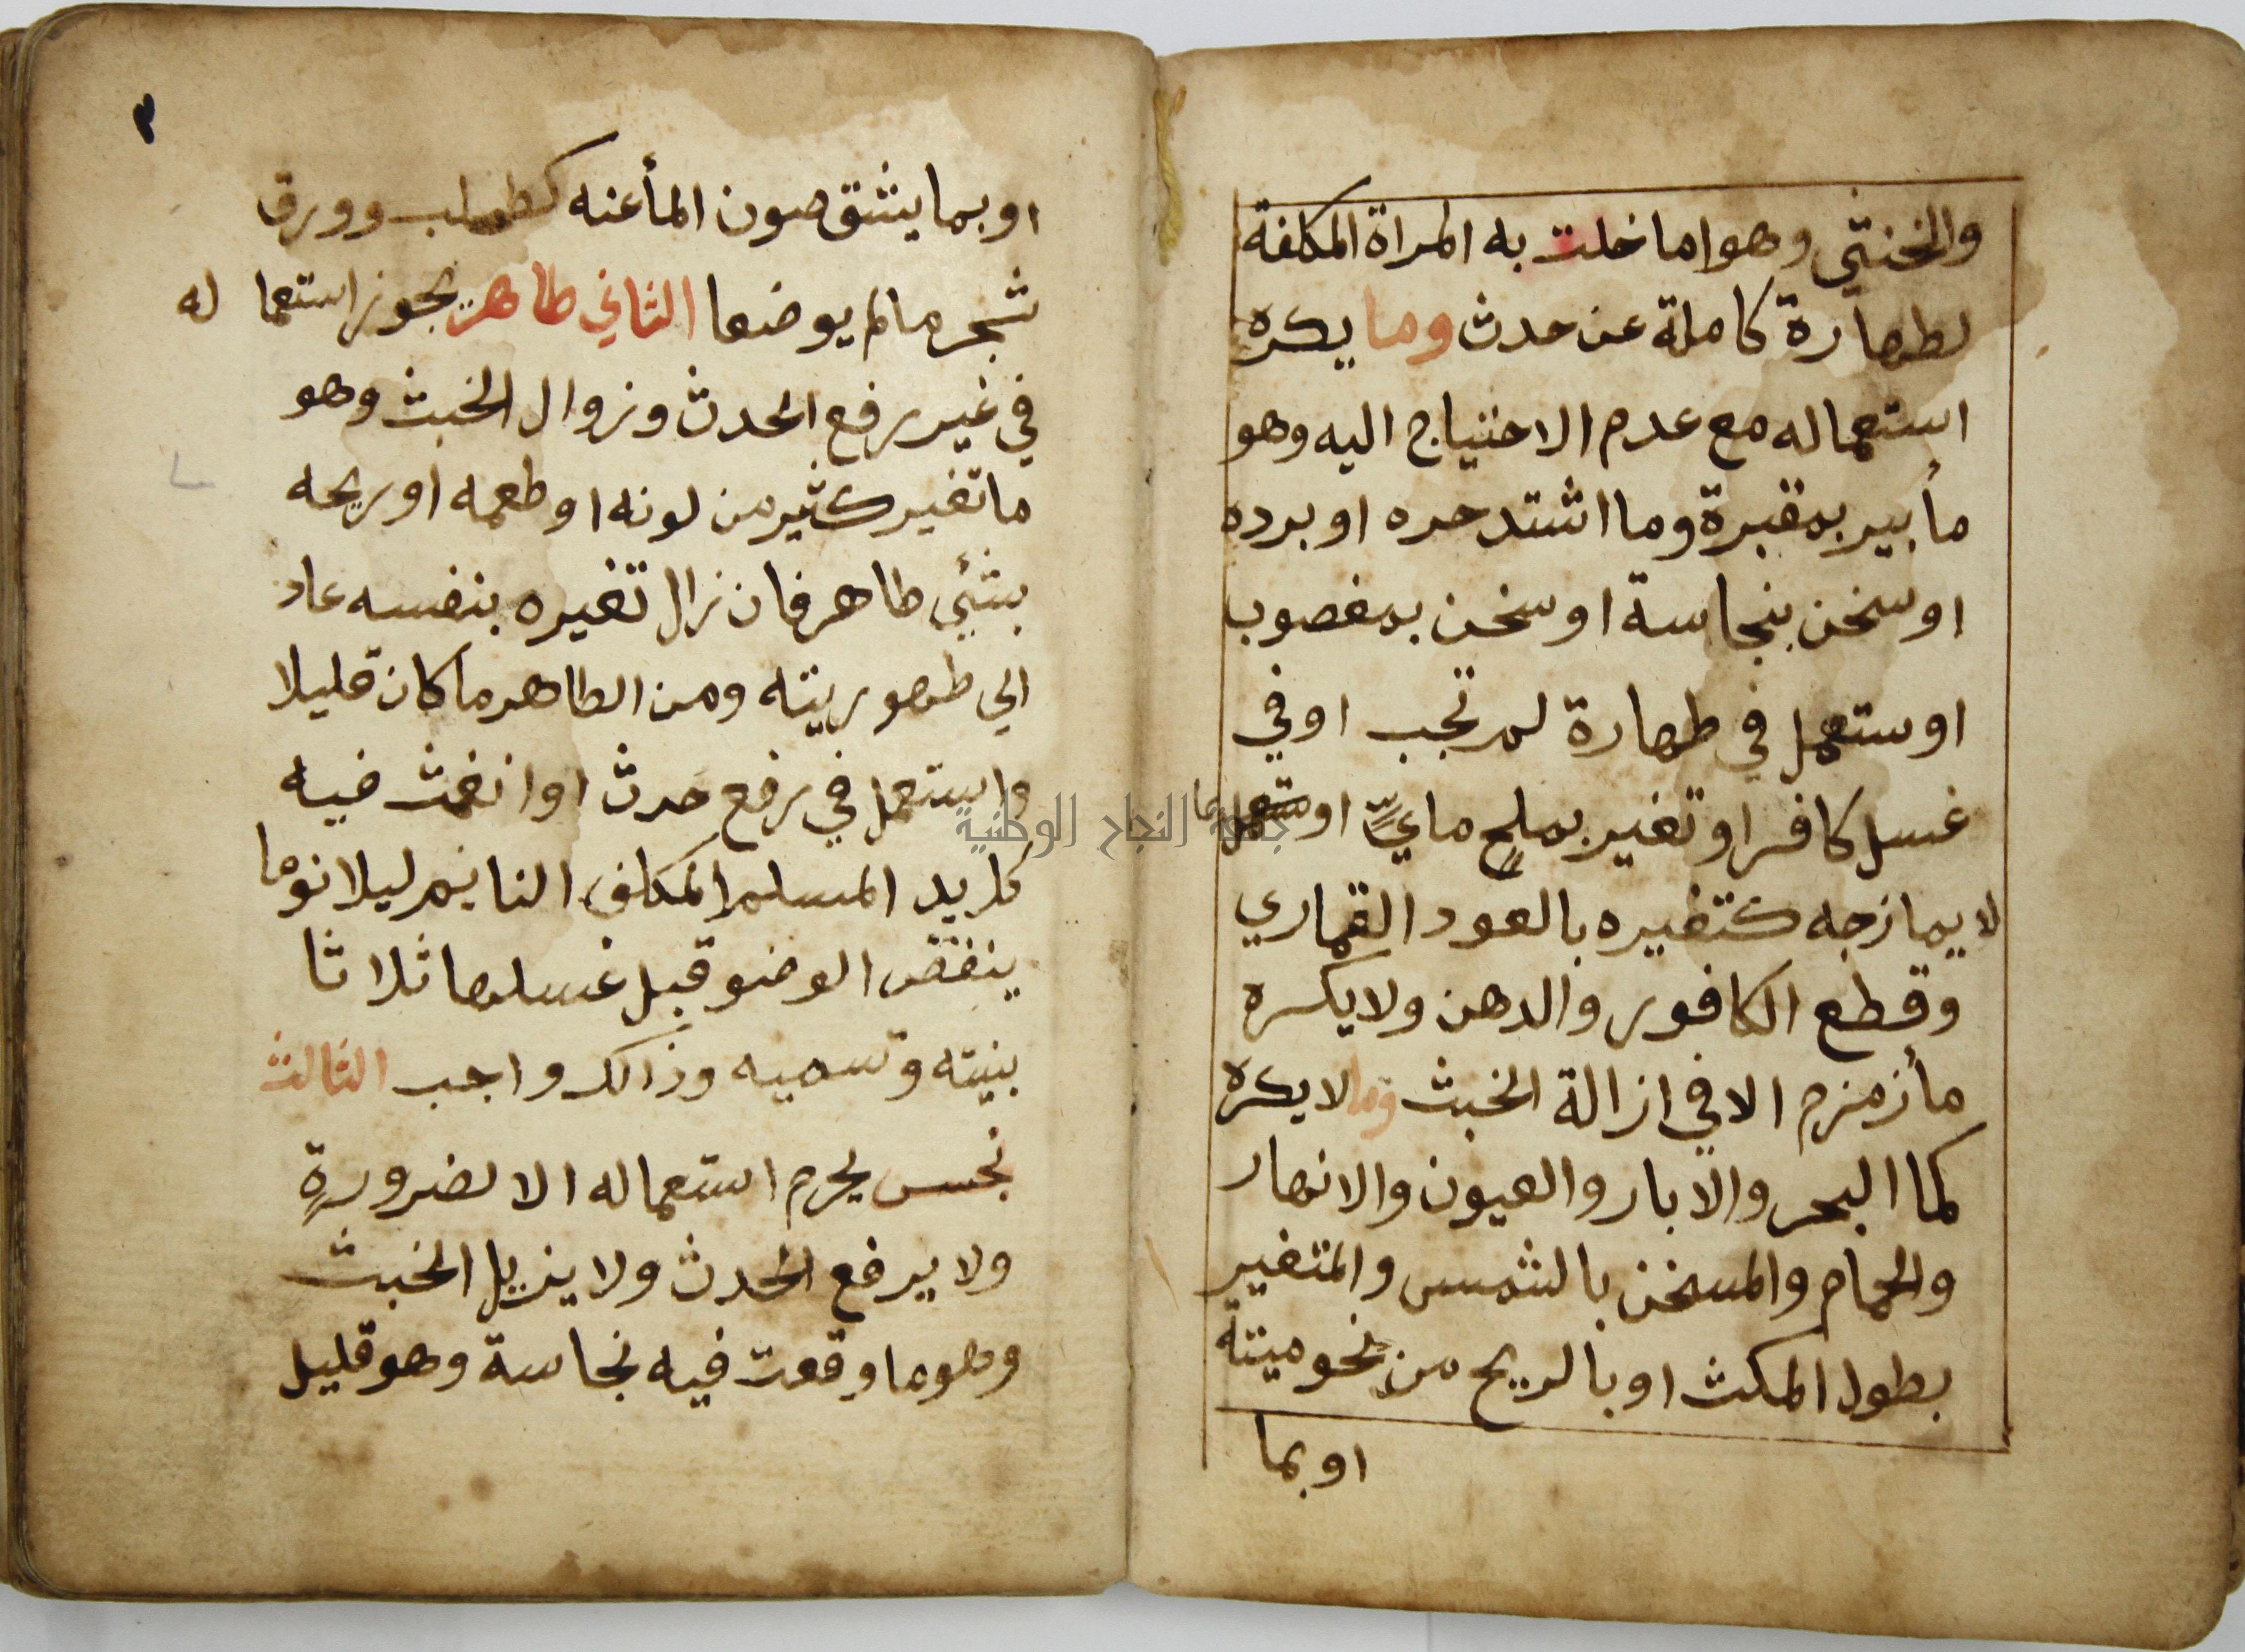 والخنثي وهو اما خلت به المراة المكلفة
لطهارة كاملة عن حدث وما يكره
استعماله مع عدم الاحتياج اليه وهو
مأبير بمقبرة وما اشتد حره او برده
او سخن بنجاسة او سخن بمغصوب
او ستعمل في طهارة لم تجب او في
غسل كافر او تغير بملح ماءيٍّ او بما
لا يمازجه كتغيره بالعود القماري
وقطع الكافور والدهن ولا يكره
مأزمزم الا في ازالة الخبث وما لا يكره
كما البحر والابار والعيون والانهار
والحمام والمسخن بالشمس والمتغير
بطول المكث او بالريح من نحو ميتة
او بما
٣
او بما يشق صون المأعنه كطحلب وورق
شجر مالم يوضعا الثاني طاهر يجوز استعما له
في غير رفع الحدث وزوال الخبث وهو
ما تغير كثير من لونه او طعمه او ريحه
بشئي طاهر فان زال تغيره بنفسه عاد
الي طهوريته ومن الطاهر ما كان قليلا
واستعمل في رفع حدث او انغمث فيه
كل يد المسلم المكلف النايم ليلا نوما
ينقض الوضو قبل غسلها ثلاثا
بنيته وتسميه وذالك واجب الثالث
نجس يحرم استعماله الا لضرورة
ولا يرفع الحدث ولا يزيل الخبث
وهو ما وقعت فيه نجاسة وهو قليل
جامعة النجاح الوطنية